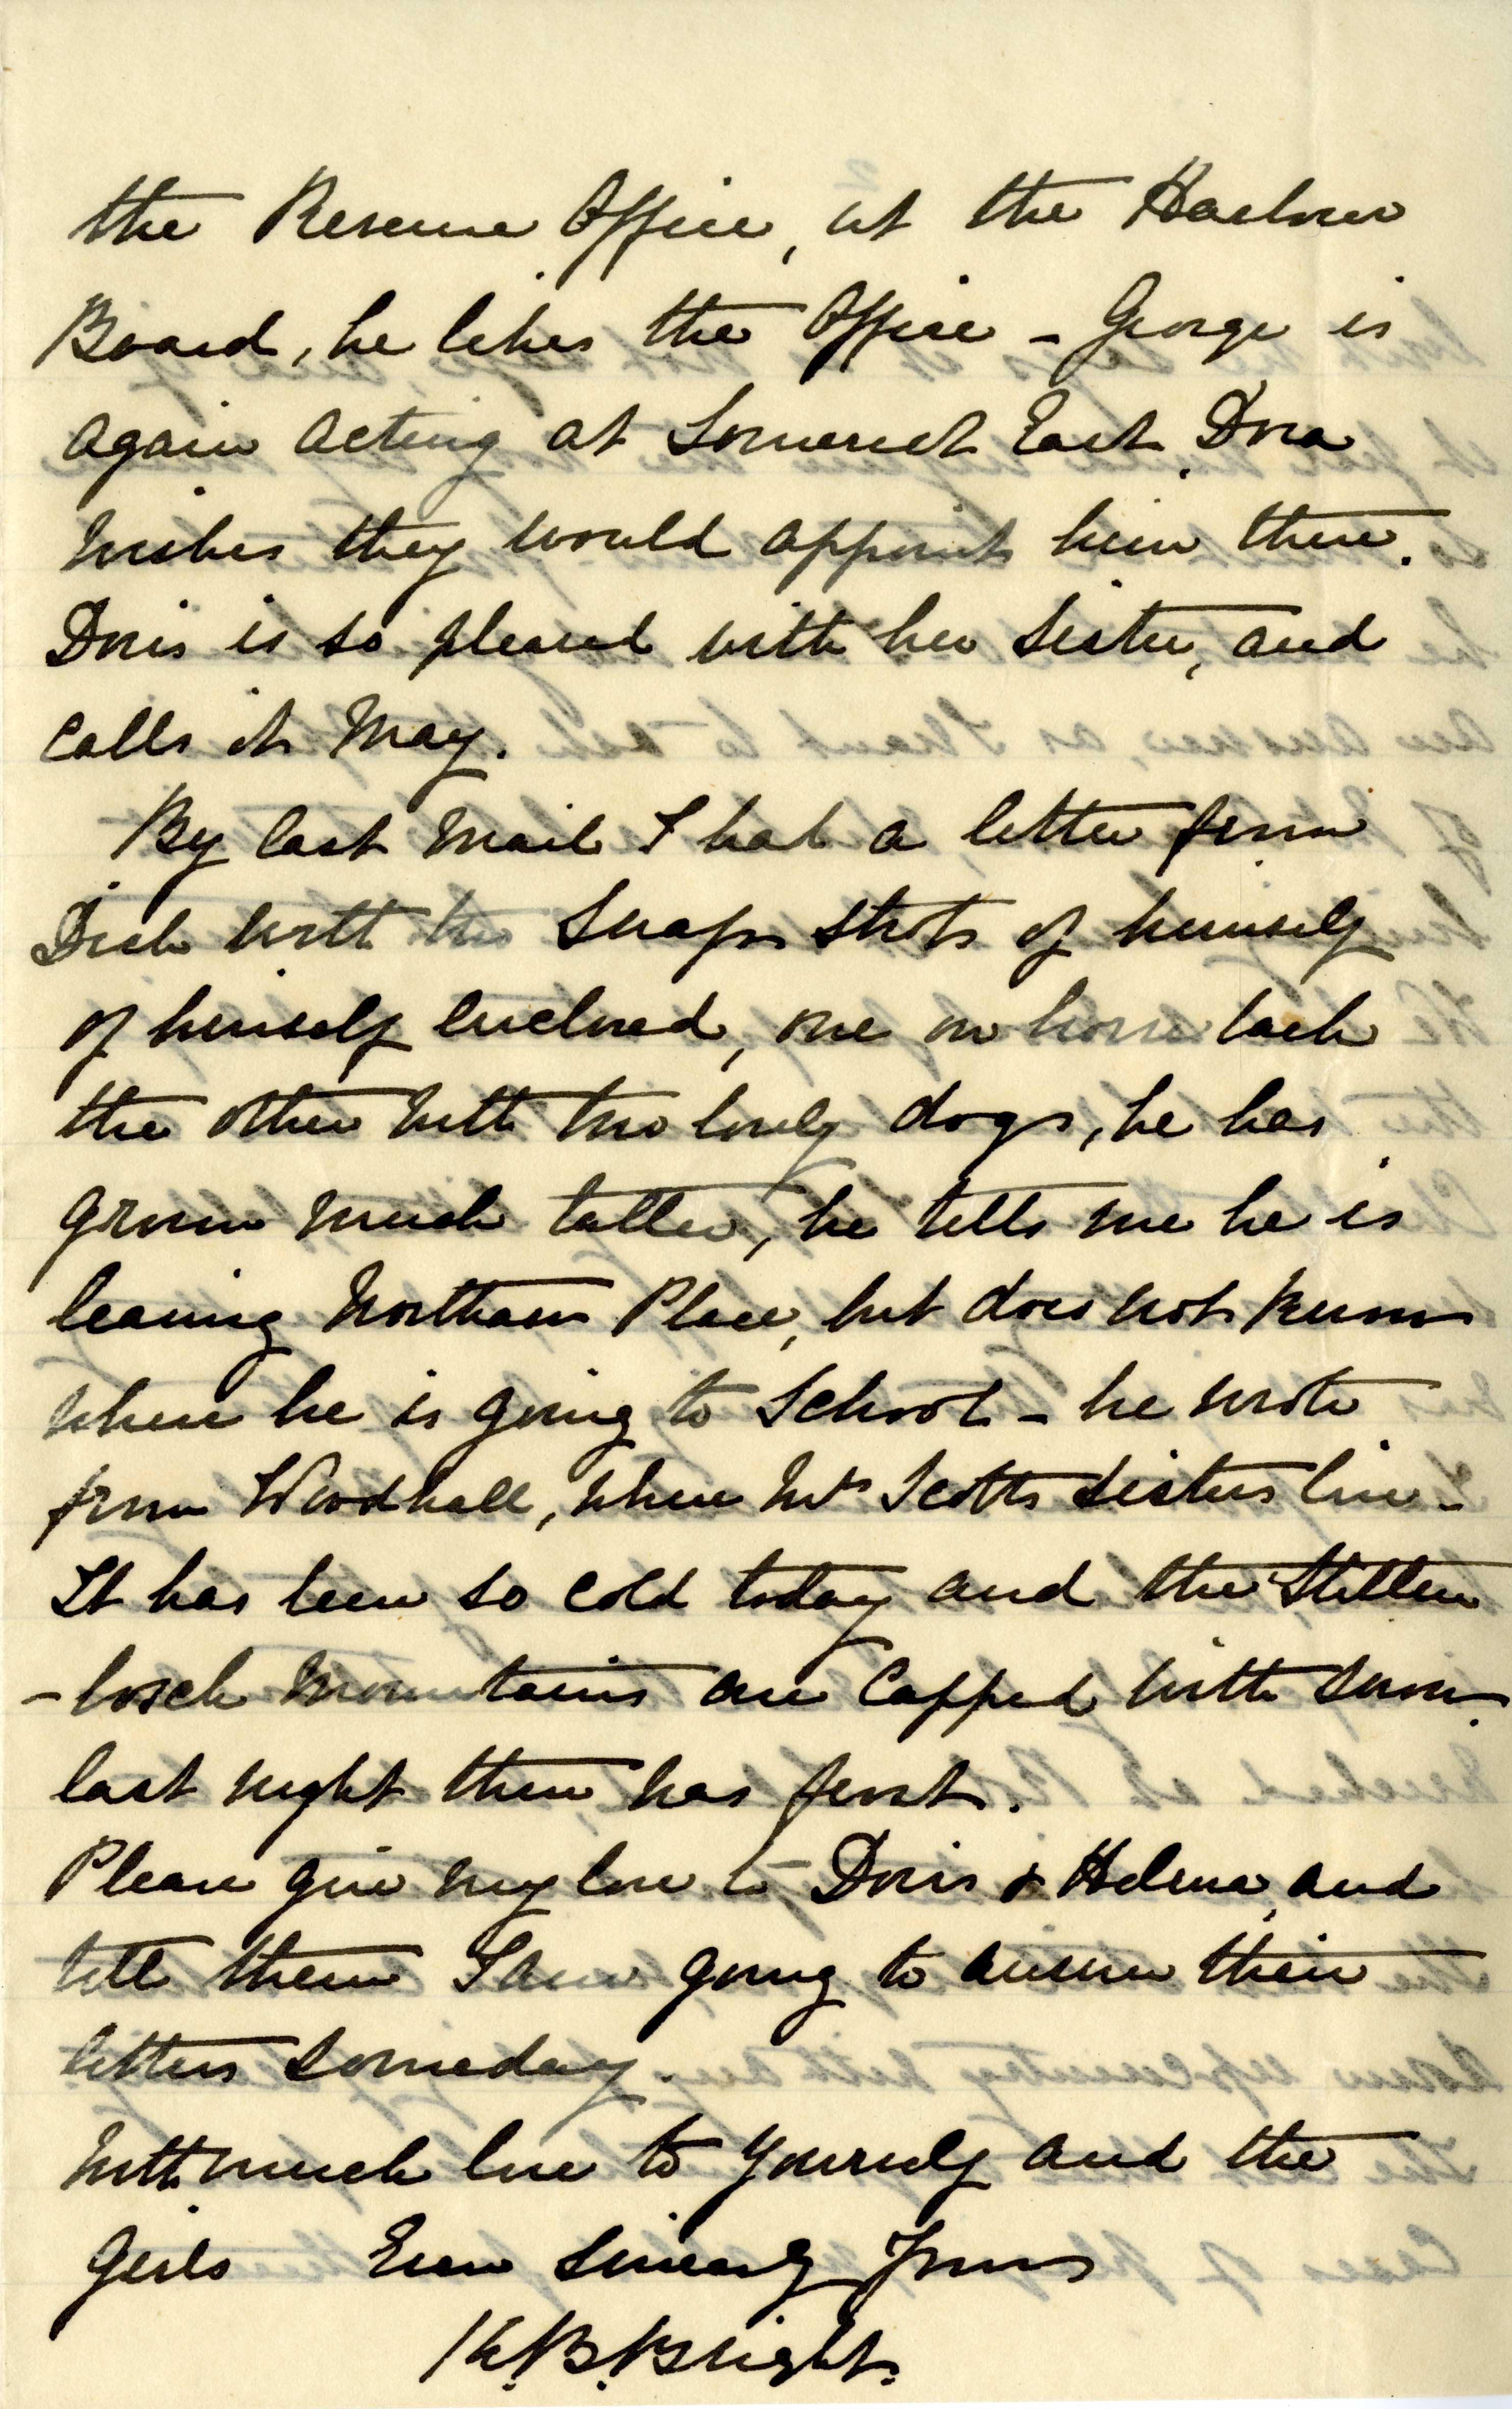 the Revenue Office, at the Harbour
Board, he likes the Office - George is
again acting at Somerset East. Dora
wishes they would appoint him there.
Doris is so pleased with her Sister, and
calls it May.
By last Mail I had a letter from
Dick with two Snaps Shots of himself
of himself enclosed, one on horse back
the other with two lovely dogs, he has
grown much taller, he tells me he is
leaving Northam Place, but does not know
where he is going to School - he wrote
from Woodhall, where Mrs Scotts Sisters live -
It has been so cold today and the Stellen
-bosch Mountains are Capped with snow.
last night there was frost.
Please give my love to Doris & Helena, and
tell them I am going to answer their
letters someday.
With much love to yourself and the
Girls Ever Sincerely Yours
K.B. Blight.